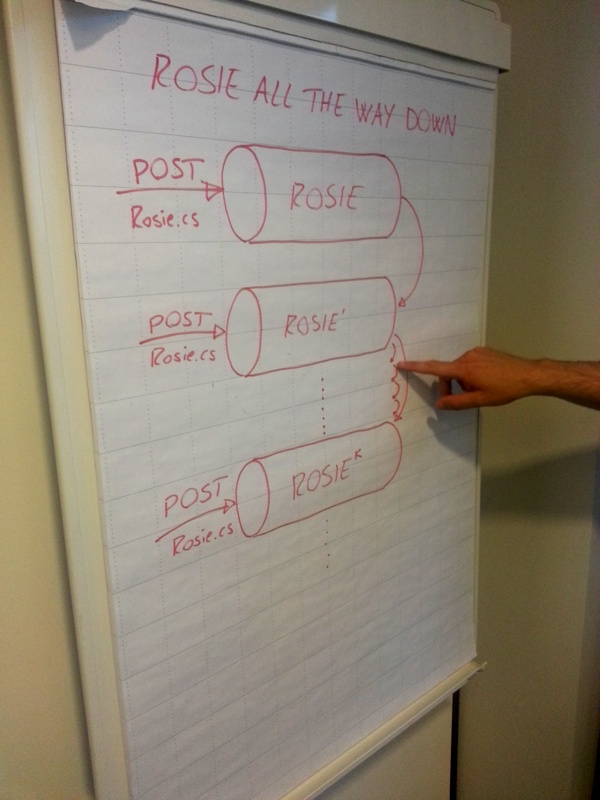 ROSIE ALL THE WAY DOWN
POST
Rosie.cs
ROSIE
POST
Rosie.cs
ROSIE'
POST
Rosie.cs
ROSIEᴷ